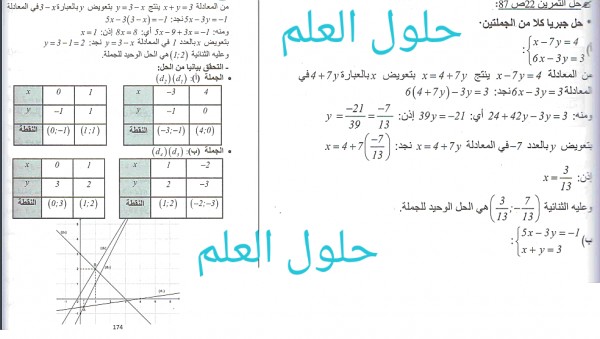 حل التمرين 22 ص 87:
• حل جبريا كلا من الجملتين.
أ) {x − 7y = 4
6x − 3y = 3:
من المعادلة x − 7y = 4 ينتج x = 4 + 7y بتعويض x بالعبارة 4 + 7y في
المعادلة 6x − 3y = 3 نجد: 6(4 + 7y) − 3y = 3
ومنه: 24 + 42y − 3y = 3 أي: 39y = −21 إذن: y = −21/39 = −7/13
بتعويض y بالعدد −7 في المعادلة x = 4 + 7y نجد: x = 4 + 7(−7/13)
إذن: x = 3/13
وعليه الثنائية (3/13; −7/13) هي الحل الوحيد للجملة.
ب) {5x − 3y = −1
x + y = 3:
من المعادلة x + y = 3 ينتج y = 3 − x بتعويض y بالعبارة 3 − x في المعادلة
5x − 3y = −1 نجد: 5x − 3(3 − x) = −1
ومنه: 5x − 9 + 3x = −1 أي: 8x = 8 إذن: x = 1
بتعويض x بالعدد 1 في المعادلة y = 3 − x نجد: y = 3 − 1 = 2
وعليه الثنائية (1; 2) هي الحل الوحيد للجملة.
- التحقق بيانيا من الحل:
• الجملة (أ): (d₁) (d₂)
x 0 1
y −1 1
النقطة (0; −1) (1; 1)
x −3 4
y −1 0
النقطة (−3; −1) (4; 0)
• الجملة (ب): (d₃) (d₄)
x 0 1
y 3 2
النقطة (0; 3) (1; 2)
x 1 −2
y 2 −3
النقطة (1; 2) (−2; −3)
174
حلول العلم
حلول العلم